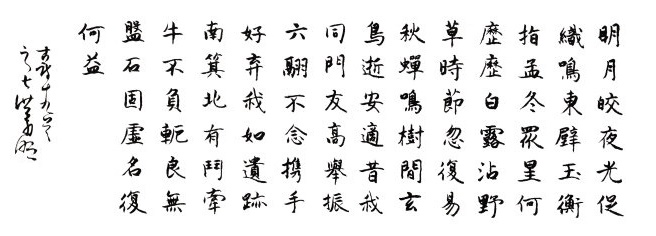 明月皎夜光促
織鳴東壁玉衡
指孟冬眾星何
歷歷白露沾野
草時節忽復易
秋蟬鳴樹間玄
鳥逝安適昔我
同門友高舉振
六翮不念携手
好弃我如遺跡
南箕北有鬥牽
牛不負軛良無
盤石固虛名復
何益
古詩十九首
之七